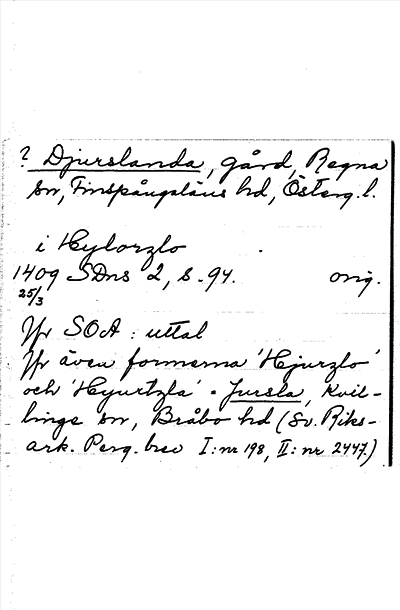 ? Djurslanda, gård, Regna
sn, Finspångaläns hd, Österg. l.
i Hylorzlo
1409 SDns 2, s. 94. orig.
25/3
Jfr SOA: uttal
Jfr även formerna 'Hjurzlo'
och 'Hyurtzla' = Jursla, Kvil-
linge sn, Bråbo hd (Sv. Riks-
ark. Perg. brev I: nr 198, II: nr 2447.)